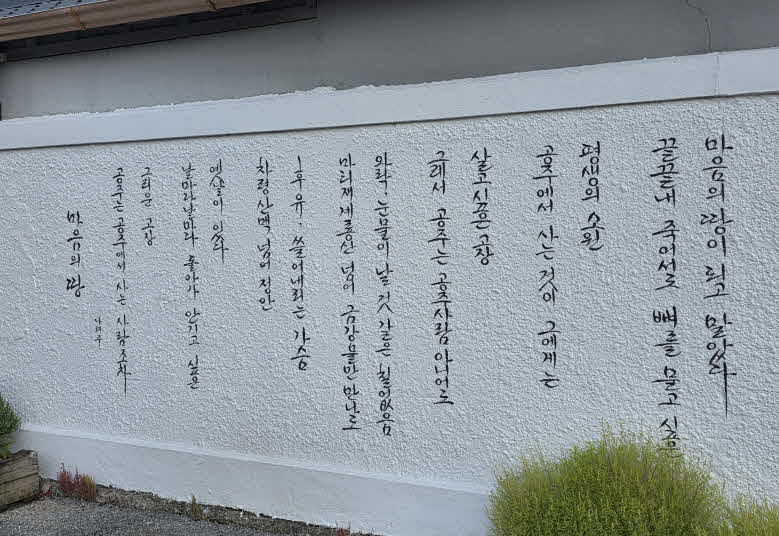 마음의 땅
나태주
공주는 공주에서 사는 사람조차
그리운 고장
날마다날마다 돌아가 안기고 싶은
옛날이 있다
차령산맥 넘어 정안
후유, 쓸어내리는 가슴
마티재 계룡산 넘어 금강물만 만나도
와락, 눈물이 날 것 같은 철없음
그래서 공주는 공주사람 아니어도
살고싶은 고장
공주에서 사는 것이 그에게는
평생의 소원
끝끝내 죽어서도 뼈를 묻고 싶은
마음의 땅이 되고 말았다